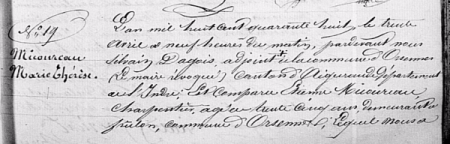 N.º 19
Micoureau
Marie Thérèse.
L'an mil huit cent quarante huit, le trente
avril à neuf heures du matin, pardevant nous
Silvain Dagois, adjoint de la commune d'Orsennes
(le maire révoqué) Canton d'Aigurande, département
de l'Indre, Est Comparu Etienne Micoureau
Charpentier, âgé de trente cinq ans demeurant à
commune d'Orsennes, lequel nous a